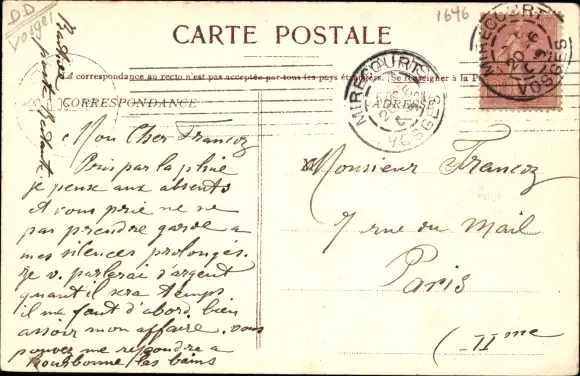 DD
Vosges
1646
CARTE POSTALE
La correspondance au recto n'est pas acceptée par tous les pays étrangers. (Se renseigner à la Poste
CORRESPONDANCE
ADRESSE
MIRECOURT
VOSGES
MIRECOURT
VOSGES
poste Restante
Mon Cher Francoz
Pris par la pluie
je pense aux absents
et vous prie ne
pas prendre garde a
mes silences prolongés.
Je v. parlerai d'argent
quant il sera temps
il me faut d'abord, bien
assoir mon affaire. vous
pouvez me repondre a
Bourbonne les bains
Monsieur Francoz
7 rue du Mail
Paris
(-IIme